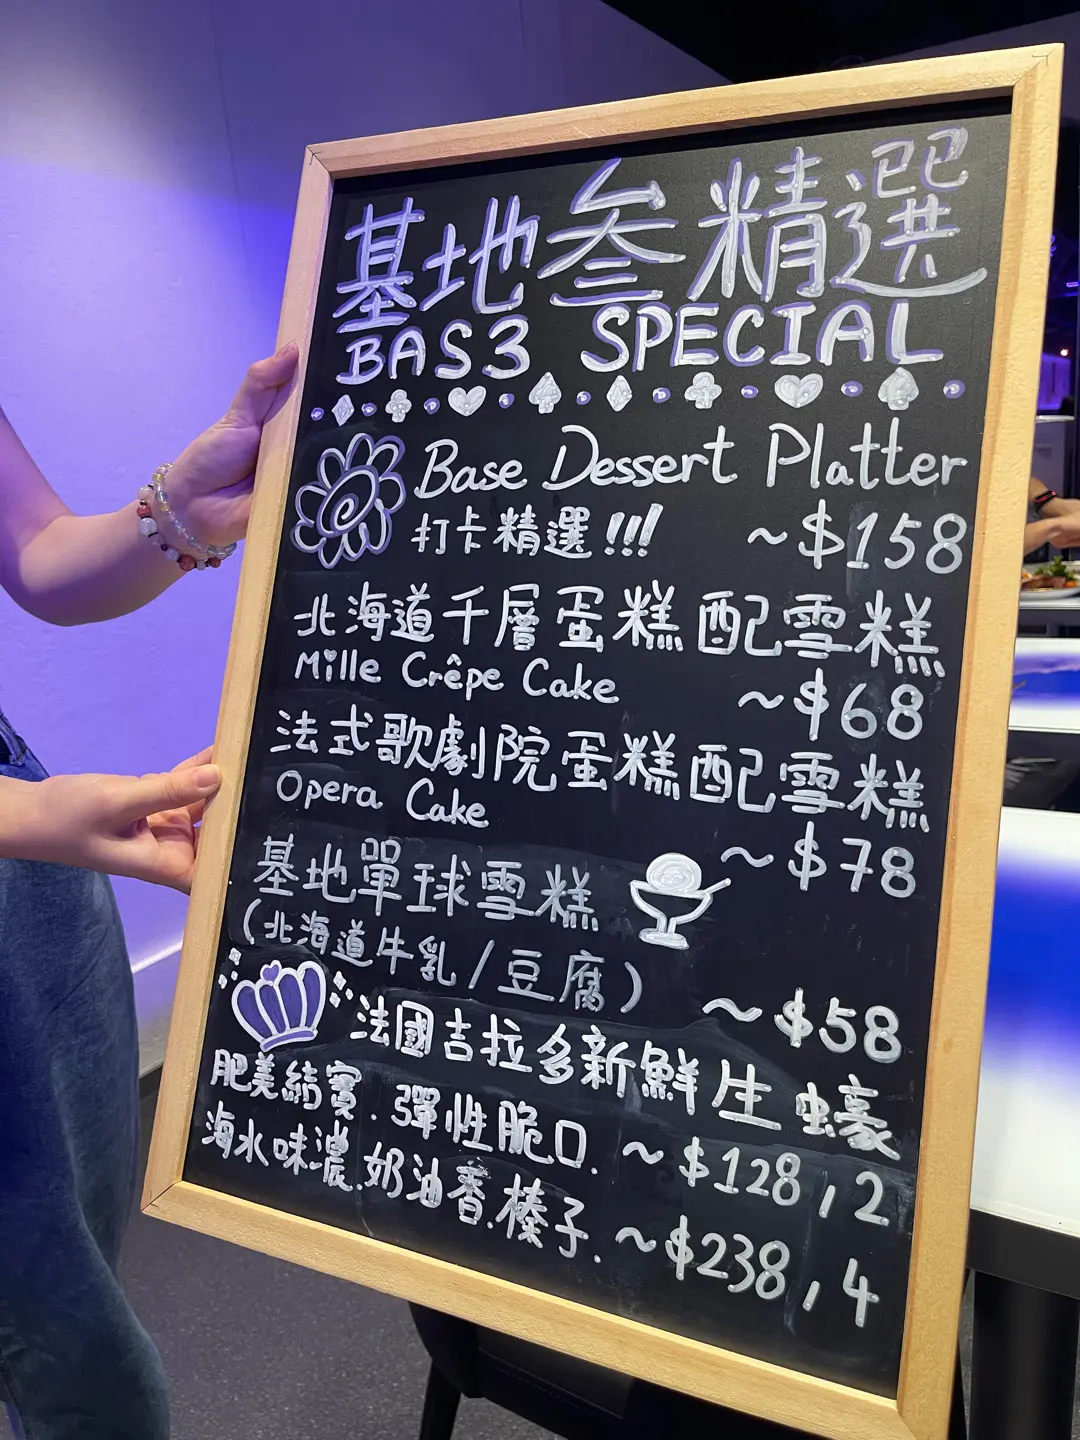 基地叁精選
BAS3 SPECIAL
Base Dessert Platter
打卡精選!!! ~$158
北海道千層蛋糕配雪糕
Mille Crêpe Cake ~$68
法式歌劇院蛋糕配雪糕
Opera Cake ~$78
基地單球雪糕
(北海道牛乳/豆腐) ~$58
法國吉拉多新鮮生蠔
肥美結實.彈性脆口. ~$128,2
海水味濃.奶油香.榛子. ~$238,4